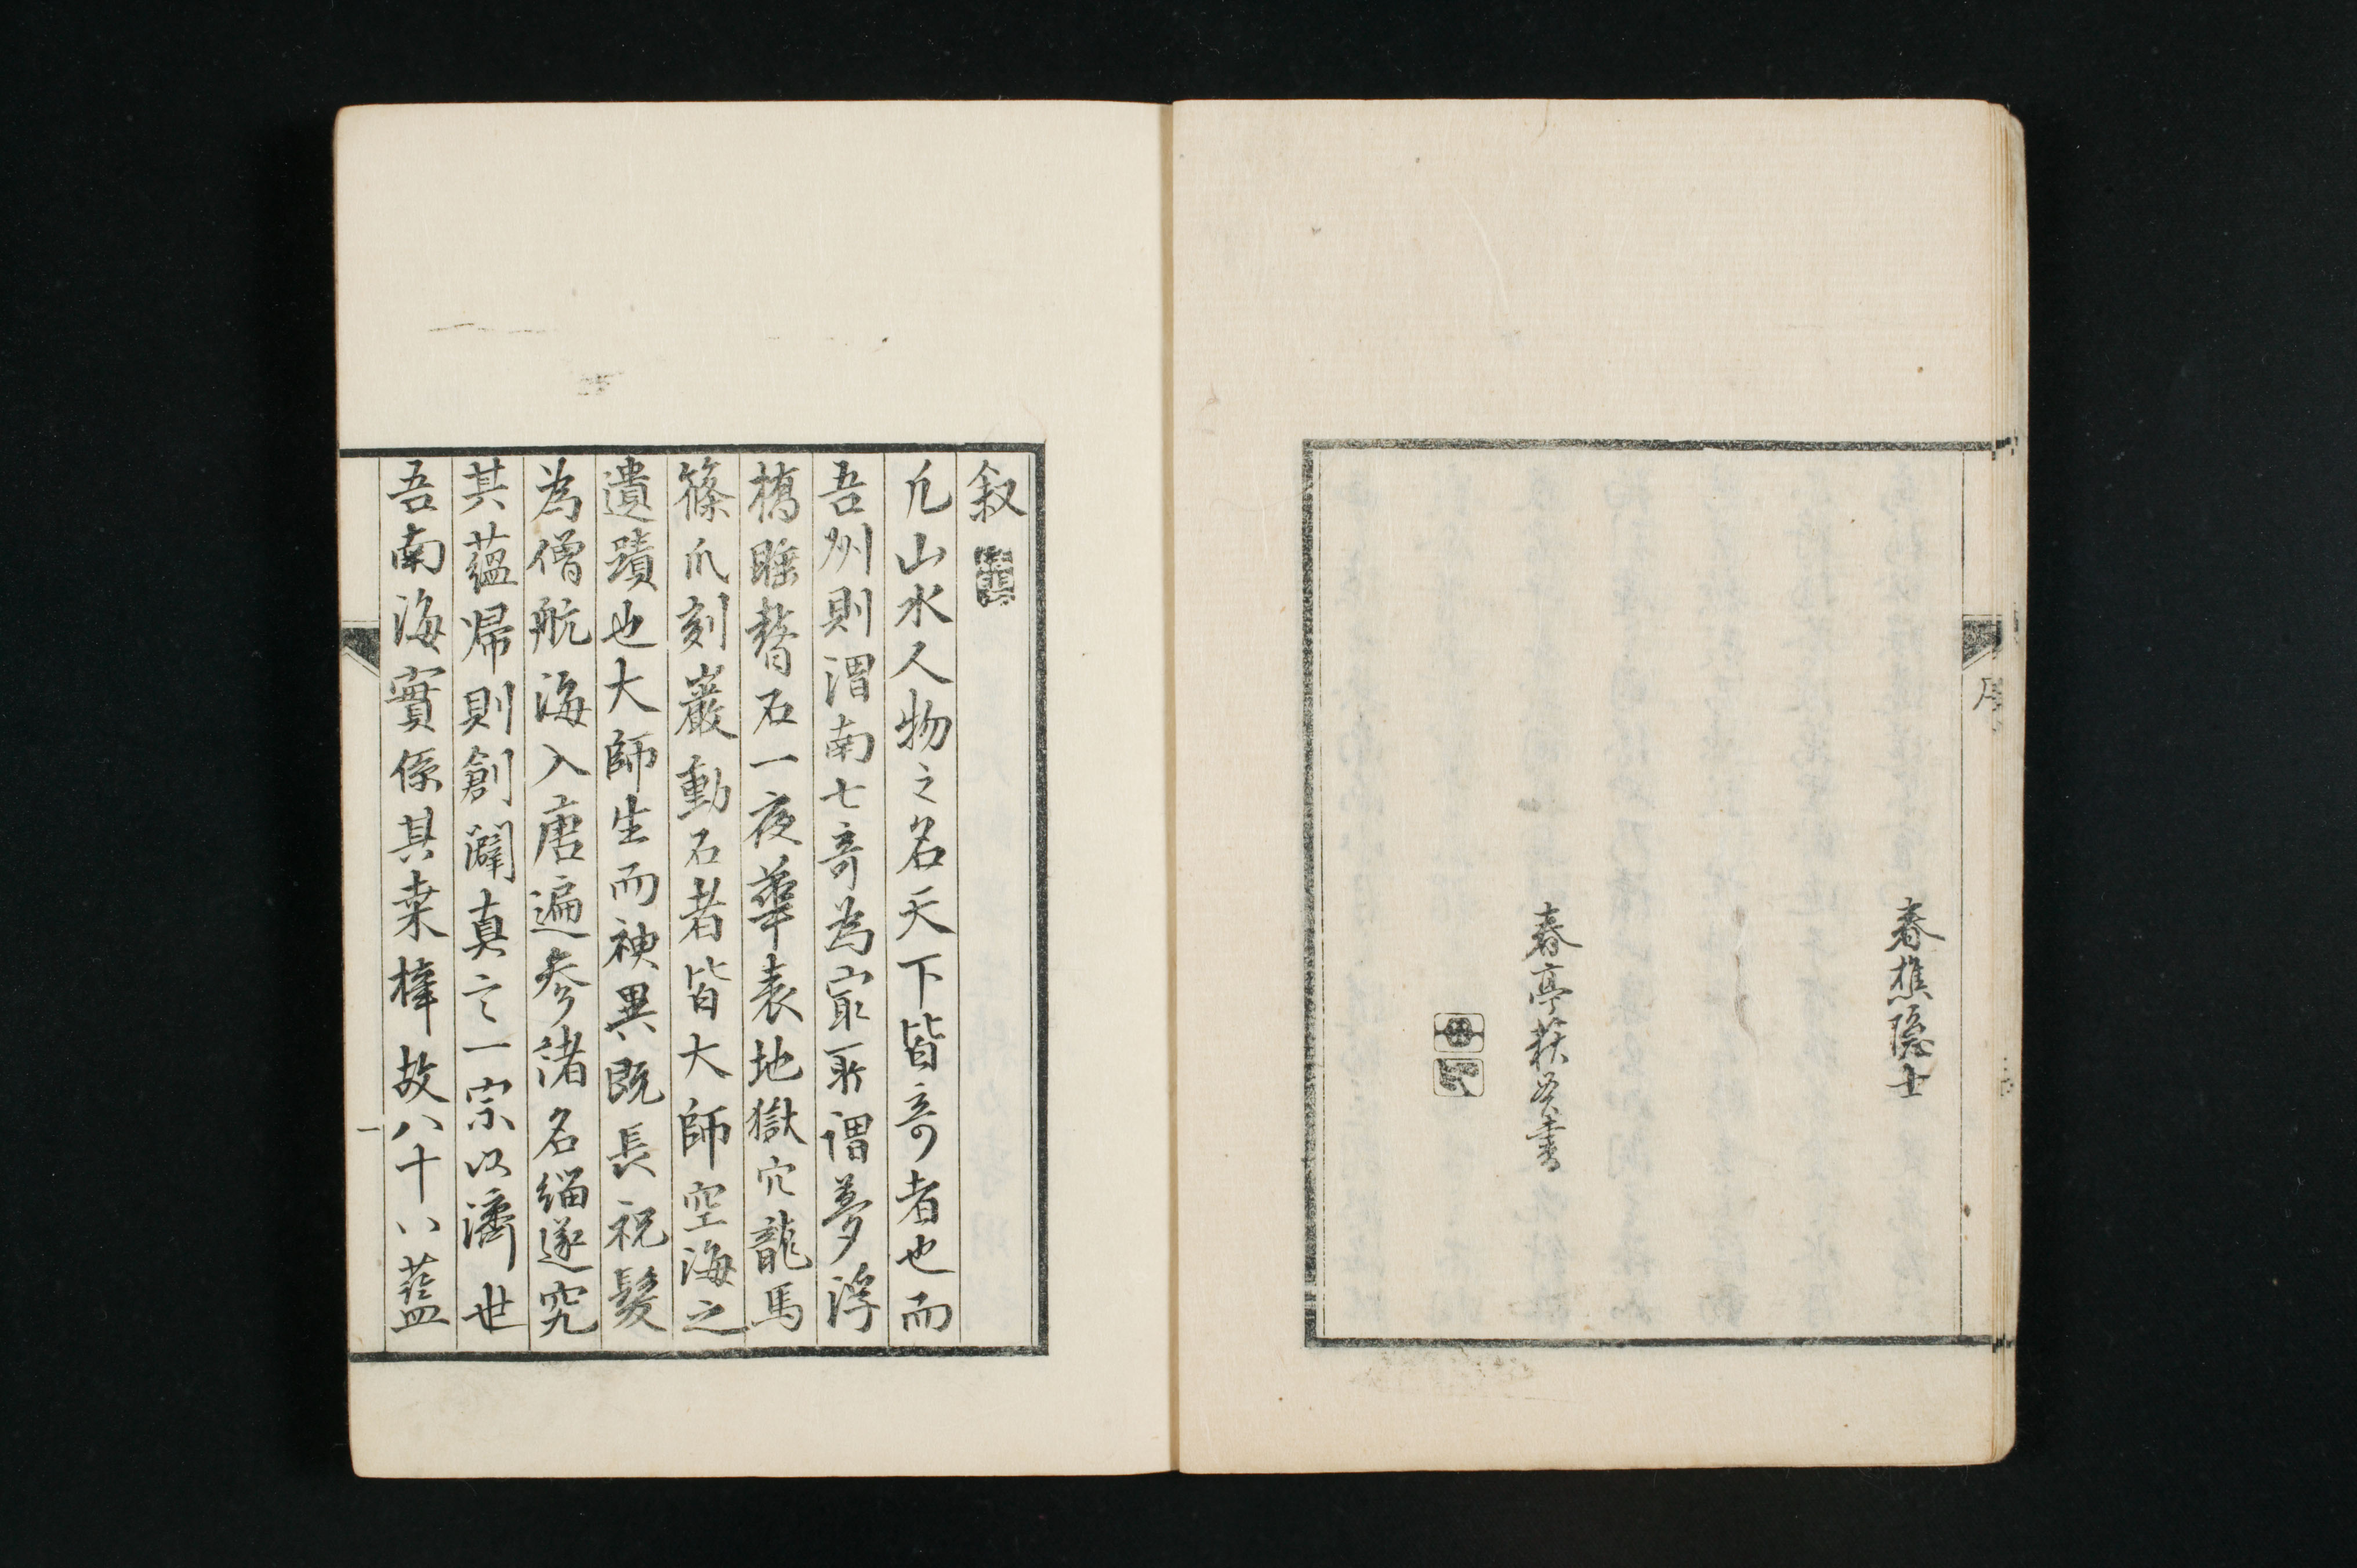 序
春樵隱士
春亭荻癸書
叙
凢山水人物之名天下皆竒者也而
吾州則渭南七竒為冣所謂夢浮
橋睡鼇石一夜華表地獄穴龍馬
篠爪刻巖動石者皆大師空海之
遺蹟也大師生而神異既長祝髮
為僧航海入唐遍參諸名緇遂究
其蘊帰則創闢真言一宗以濟世
吾南海實係其桒梓故八十八藍
一